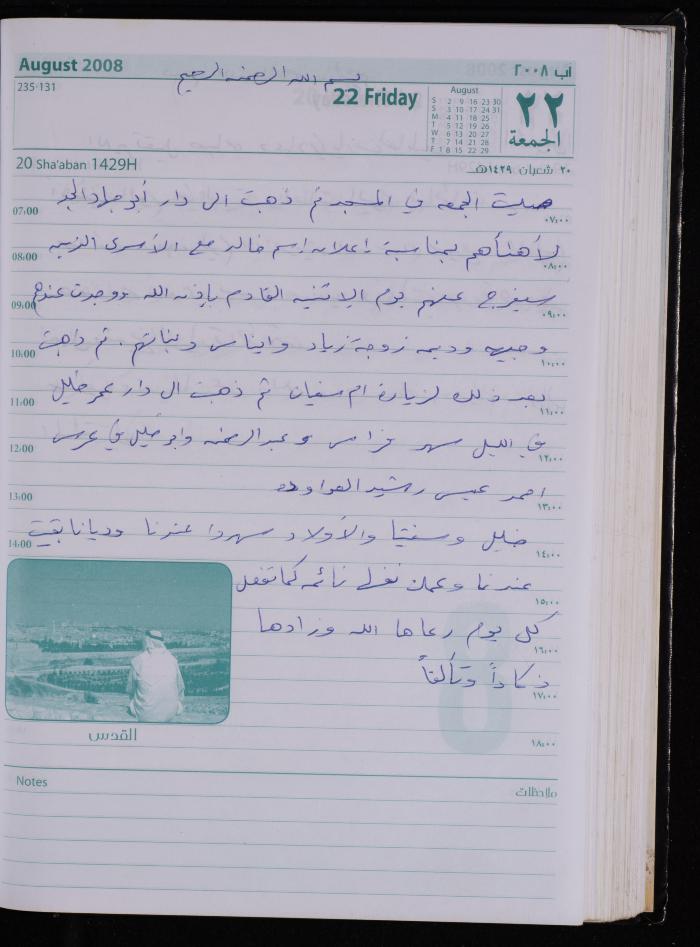 August 2008
آب ٢٠٠٨
بسم الله الرحمن الرحيم
235-131
22 Friday
August
S 2 9 16 23 30
S 3 10 17 24 31
M 4 11 18 25
T 5 12 19 26
W 6 13 20 27
T 7 14 21 28
F 1 8 15 22 29
٢٢
الجمعة
20 Sha'aban 1429H
٢٠ شعبان ١٤٢٩هـ
صليت الجمعه في المسجد ثم ذهبت الى دار أبو جهاد
07:00 ٠٧:٠٠
لأهنأهم بمناسبة اعلان اسم خالد مع الأسرى الذين
08:00 ٠٨:٠٠
سيفرج عنهم يوم الاثنين القادم بإذن الله ووجدت عندهم
09:00 ٠٩:٠٠
وجيه وديمه زوجة زياد وايناس وبناتهم . ثم ذهبت
10:00 ١٠:٠٠
بعد ذلك لزيارة ام سفيان ثم ذهبت ال دار عمر خليل
11:00 ١١:٠٠
في الليل سهر فراس وعبد الرحمن وابو خليل في عرس
12:00 ١٢:٠٠
احمد عيسى رشيد العواوده
13:00 ١٣:٠٠
خليل وسفتيا والأولاد سهروا عندنا وديانا بقيت
14:00 ١٤:٠٠
عندنا وعملت نفسها نائمه كما تفعل
١٥:٠٠
كل يوم رعاها الله وزادها
١٦:٠٠
ذكاءاً وتألقاً
١٧:٠٠
القدس
١٨:٠٠
Notes
ملاحظات